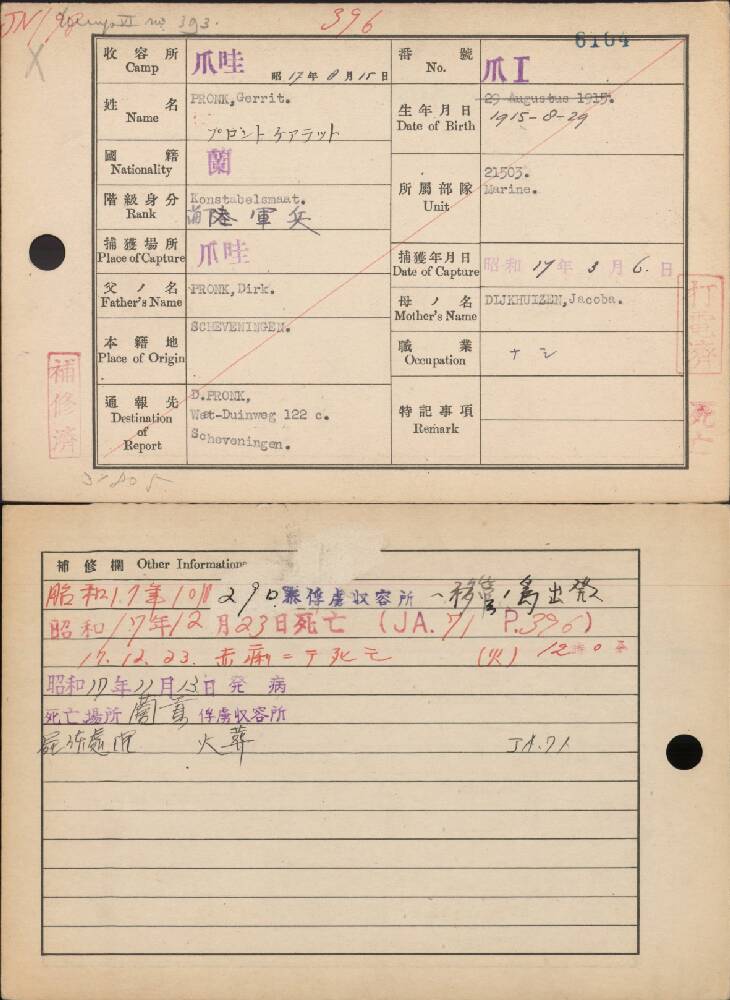 396
6164
收容所 Camp 爪哇 昭17年8月15日
番號 No. 爪I
姓名 Name PRONK,Gerrit.
プロント ケアラット
生年月日 Date of Birth 29 Augustus 1915.
1915-8-29
國籍 Nationality 蘭
階級身分 Rank Konstabelsmaat.
陸軍兵
所屬部隊 Unit 21503.
Marine.
捕獲場所 Place of Capture 爪哇
捕獲年月日 Date of Capture 昭和17年3月6日
父ノ名 Father's Name PRONK,Dirk.
母ノ名 Mother's Name DIJKHUIZEN,Jacoba.
本籍地 Place of Origin SCHEVENINGEN.
職業 Occupation ナシ
通報先 Destination of Report D.PRONK,
Wat-Duinweg 122 c.
Scheveningen.
特記事項 Remark
補修濟
打電濟
死亡
補修欄 Other Informations
昭和17年10月29日 俘虜収容所ヘ移管ノ為出發
昭和17年12月23日死亡 (JA.71 P.396)
17.12.23. 赤痢ニテ死亡 (火)
昭和17年11月13日発病
死亡場所 俘虜収容所
火葬 JA.71